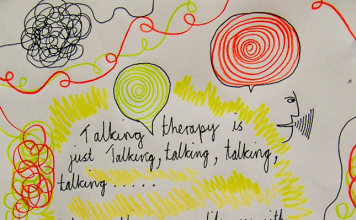 Talking therapy is
just Talking, talking, talking,
talking.....